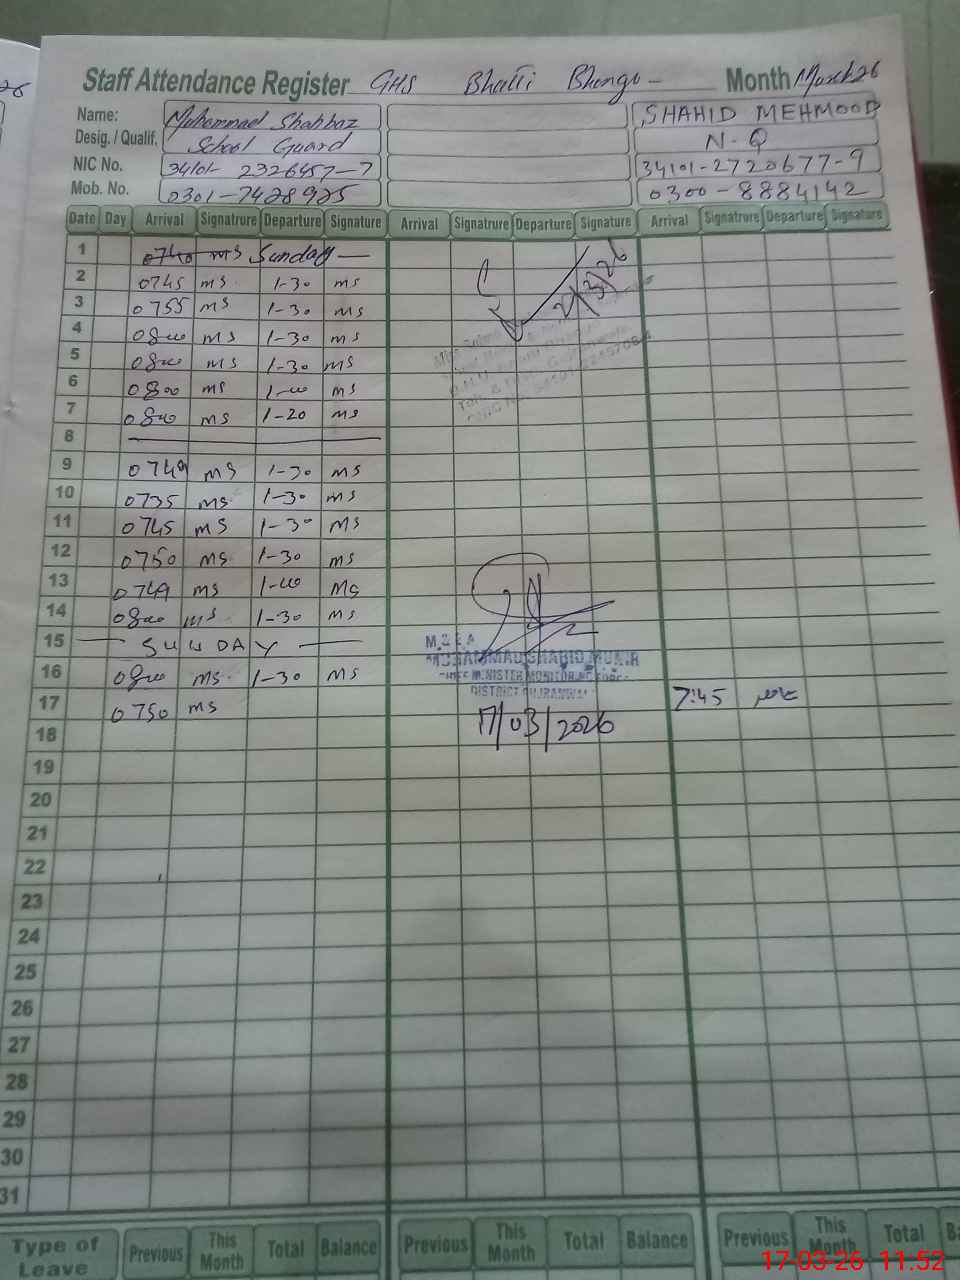 Staff Attendance Register GHS Bhatti Bhango - Month March 26
Name: Muhammad Shahbaz SHAHID MEHMOOD
Desig. / Qualif. School Guard N-Q
NIC No. 34101- 2326457-7 34101-2720677-9
Mob. No. 0301-7428925 0300-8884142
Date Day Arrival Signatrure Departure Signature Arrival Signatrure Departure Signature Arrival Signatrure Departure Signature
1 0740 ms Sunday
2 0745 ms 1-30 ms 2/3/26
3 0755 ms 1-30 ms
4 0800 ms 1-30 ms
5 0800 ms 1-30 ms
6 0800 ms 1-00 ms
7 0800 ms 1-20 ms
8
9 0749 ms 1-30 ms
10 0735 ms 1-30 ms
11 0745 ms 1-30 ms
12 0750 ms 1-30 ms
13 0749 ms 1-00 ms
14 0800 ms 1-30 ms
15 SUNDAY
M.& E.A
MUHAMMAD SHAHID MUNIR
16 0800 ms 1-30 ms
CHIEF MINISTER MONITORING FORCE
DISTRICT GUJRANWALA
17 0750 ms 7:45
17/03/2026
18
19
20
21
22
23
24
25
26
27
28
29
30
31
Type of Leave Previous This Month Total Balance Previous This Month Total Balance Previous This Month Total
17-03-26 11.52